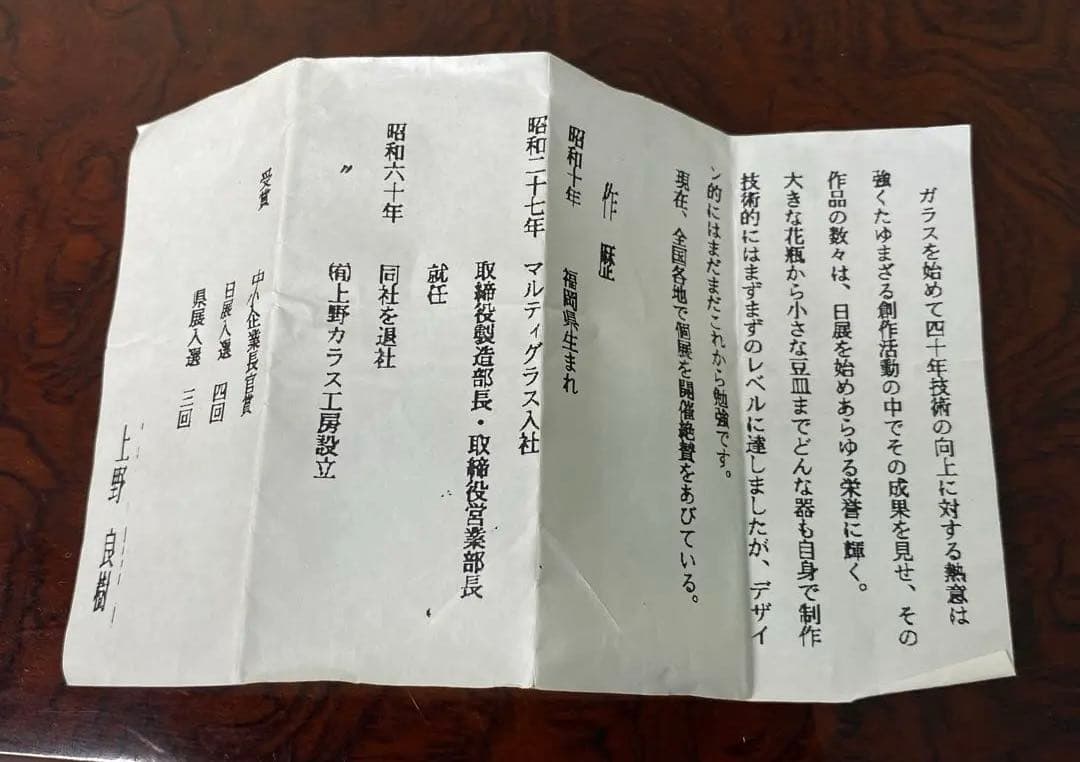 ガラスを始めて四十年技術の向上に対する熱意は
強くたゆまざる創作活動の中でその成果を見せ、その
作品の数々は、日展を始めあらゆる栄誉に輝く。
大きな花瓶から小さな豆皿までどんな器も自身で制作
技術的にはまずまずのレベルに達しましたが、デザイ
ン的にはまだまだこれから勉強です。
現在、全国各地で個展を開催絶賛をあびている。
作歴
昭和十年 福岡県生まれ
昭和二十七年 マルティグラス入社
取締役製造部長・取締役営業部長
就任
昭和六十年 同社を退社
〃 ㈲上野ガラス工房設立
受賞 中小企業長官賞
日展入選 四回
県展入選 三回
上野 良樹